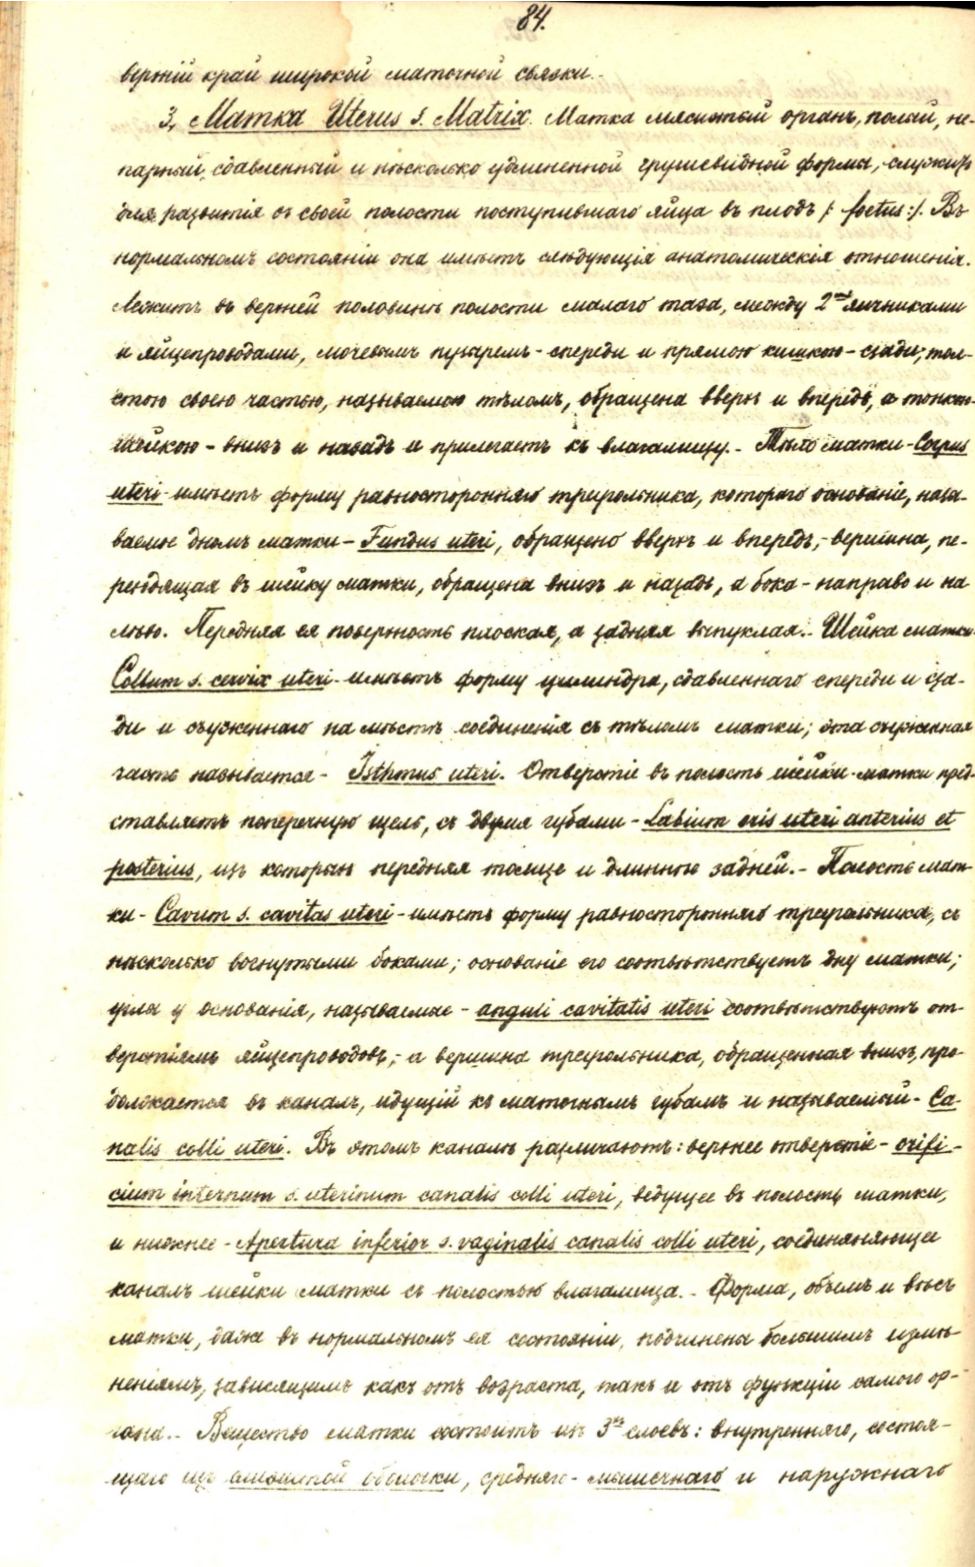 84.
верхній край широкой маточной связки.-
3, Матка Uterus s. Matrix. Матка мясистый органъ, полый, не-
парный, сдавленный и нѣсколько удлиненной грушевидной формы, служитъ
для развитія въ своей полости поступившаго яйца въ плодъ /: foetus :/. Въ
нормальномъ состояніи она имѣетъ слѣдующія анатомическія отношенія.
Лежитъ въ верхней половинѣ полости малаго таза, между 2мя яичниками
и яйцепроводами, мочевымъ пузыремъ - спереди и прямою кишкою - сзади; тол-
стою своею частью, называемою тѣломъ, обращена вверхъ и впередъ, а тонкою
шейкою - внизъ и назадъ и прилегаетъ къ влагалищу.- Тѣло матки - Corpus
uteri - имѣетъ форму равносторонняго треугольника, котораго основаніе, назы-
ваемое дномъ матки - Fundus uteri, обращено вверхъ и впередъ,- вершина, пе-
реходящая въ шейку матки, обращена внизъ и назадъ, а бока - направо и на
лѣво. Передняя ея поверхность плоская, а задняя выпуклая.- Шейка матки
Collum s. cervix uteri - имѣетъ форму цилиндра, сдавленнаго спереди и сза-
ди и съуженнаго на мѣстѣ соединенія съ тѣломъ матки; эта съуженная
часть называется - Isthmus uteri. Отверстіе въ полость шейки матки пред-
ставляетъ поперечную щель, съ двумя губами - Labium oris uteri anterius et
posterius, изъ которыхъ передняя толще и длиннѣе задней.- Полость мат-
ки - Cavum s. cavitas uteri - имѣетъ форму равносторонняго треугольника, съ
нѣсколько вогнутыми боками; основаніе его соотвѣтствуетъ дну матки;
углы у основанія, называемые - anguli cavitatis uteri соотвѣтствуютъ от-
верстіямъ яйцепроводовъ,- а вершина треугольника, обращенная внизъ, про-
должается въ каналъ, идущій къ маточнымъ губамъ и называемый - Ca-
nalis colli uteri. Въ этомъ каналѣ различаютъ: верхнее отверстіе - orifi-
cium internum s. uterinum canalis colli uteri, ведущее въ полость матки,
и нижнее - Apertura inferior s. vaginalis canalis colli uteri, соединяняющее
каналъ шейки матки съ полостью влагалища.- Форма, объемъ и вѣсъ
матки, даже въ нормальномъ ея состояніи, подчинены большимъ измѣ-
неніямъ, зависящимъ какъ отъ возраста, такъ и отъ функціи самого ор-
гана.- Вещество матки состоитъ изъ 3хъ слоевъ: внутренняго, состоя-
щаго изъ слизистой оболочки, средняго - мышечнаго и наружнаго